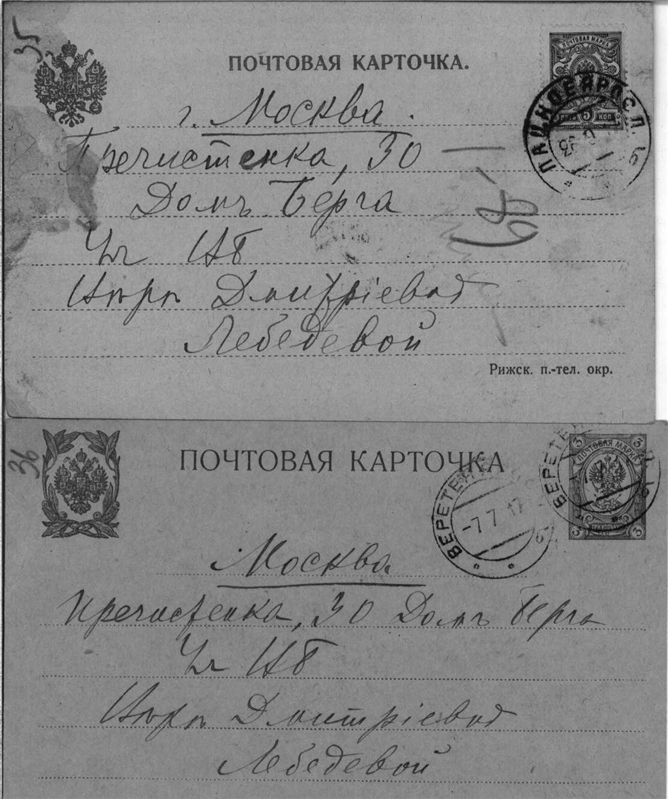 35
ПОЧТОВАЯ КАРТОЧКА.
ПОЧТОВАЯ МАРКА
3 КОП
г. Москва.
Пречистенка, 30
Домъ Берга
Кв
Дмитріевой
Лебедевой
Рижск. п.-тел. окр.
36
ПОЧТОВАЯ КАРТОЧКА
ПОЧТОВАЯ МАРКА
3 3
-7 7 17
Москва
Пречистенка, 30 Домъ Берга
Кв
Дмитріевой
Лебедевой